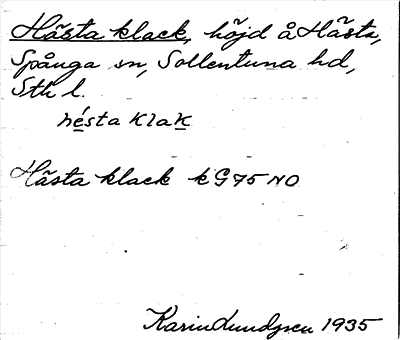 Hästa klack, höjd å Hästa,
Spånga sn, Sollentuna hd,
Sth l.
hésta klak
Hästa klack kG75NO
Karin Lundgren 1935